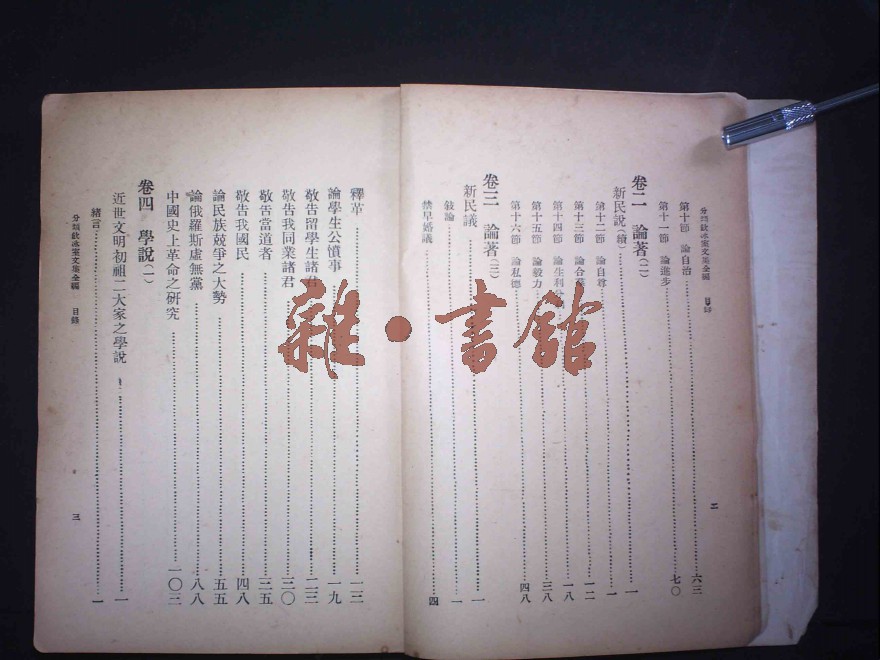 分類飲冰室文集全編　目錄
第十節　論自治……六三
第十一節　論進步……七〇
卷二　論著(二)
新民說(續)……一
第十二節　論自尊……一
第十三節　論合羣……一二
第十四節　論生利分……一八
第十五節　論毅力……三八
第十六節　論私德……四八
卷三　論著(三)
新民議……一
敍論……一
禁早婚議……四
二
釋革……一三
論學生公憤事……一九
敬告留學生諸君……二三
敬告我同業諸君……三〇
敬告當道者……三五
敬告我國民……四八
論民族競爭之大勢……五五
論俄羅斯虛無黨……八八
中國史上革命之研究……一〇三
卷四　學說(一)
近世文明初祖二大家之學說……一
緒言……一
分類飲冰室文集全編　目錄
三
雜·書館